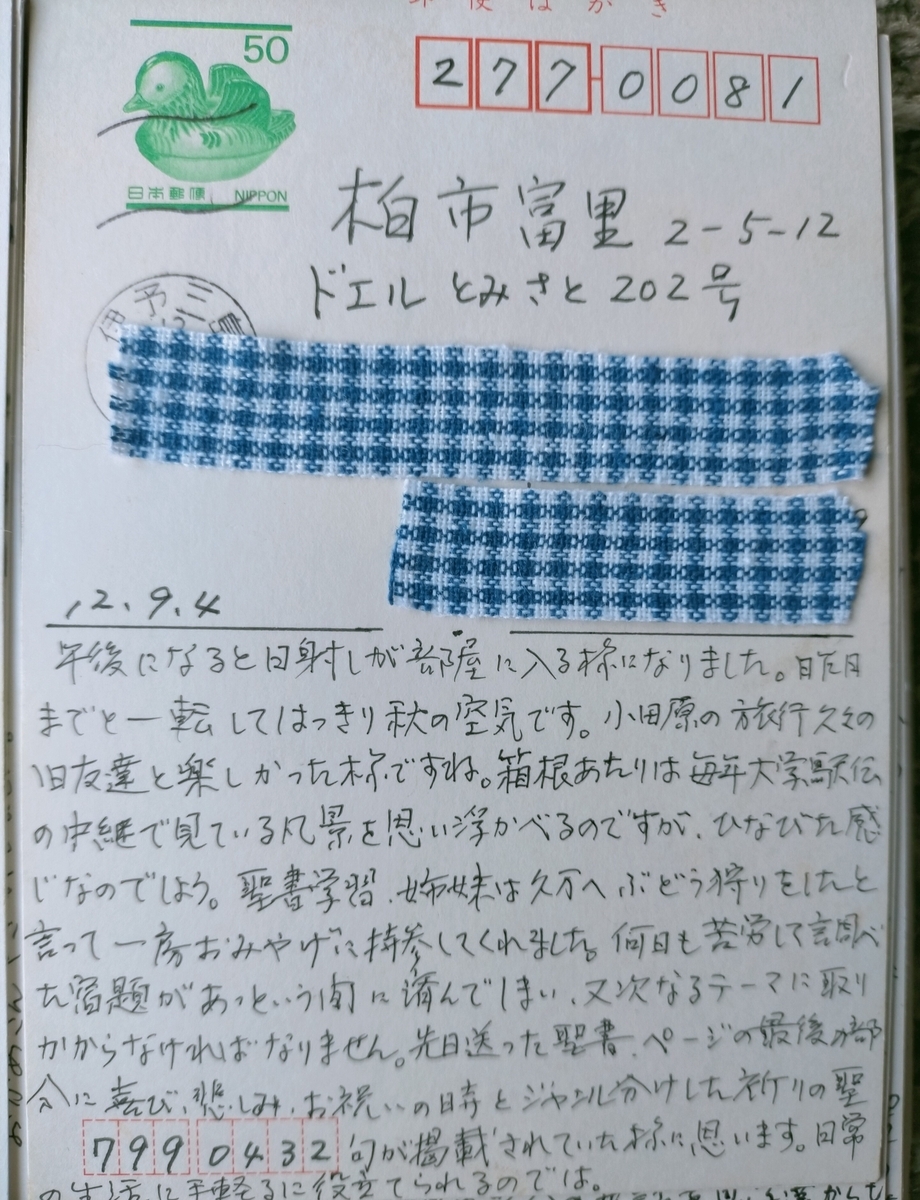 郵便はがき
50
日本郵便 NIPPON
277-0081
柏市富里 2-5-12
ドエル とみさと 202号
伊予三島
12
12.9.4
午後になると日射しが部屋に入る様になりました。昨日
までと一転してはっきり秋の空気です。小田原の旅行久々の
旧友達と楽しかった様ですね。箱根あたりは毎年大学駅伝
の中継で見ている風景を思い浮かべるのですが、ひなびた感
じなのでしょう。聖書学習、姉妹は久万へぶどう狩りをしたと
言って一房おみやげに持参してくれました。何日も苦労して調べ
た宿題があっという間に済んでしまい、又次なるテーマに取り
かからなければなりません。先日送った聖書、ページの最後の部
分に喜び、悲しみ、お祝いの時とジャンル分けした祈りの聖
句が掲載されていた様に思います。日常
799 0432
の生活に手軽るに役立てられるのでは。